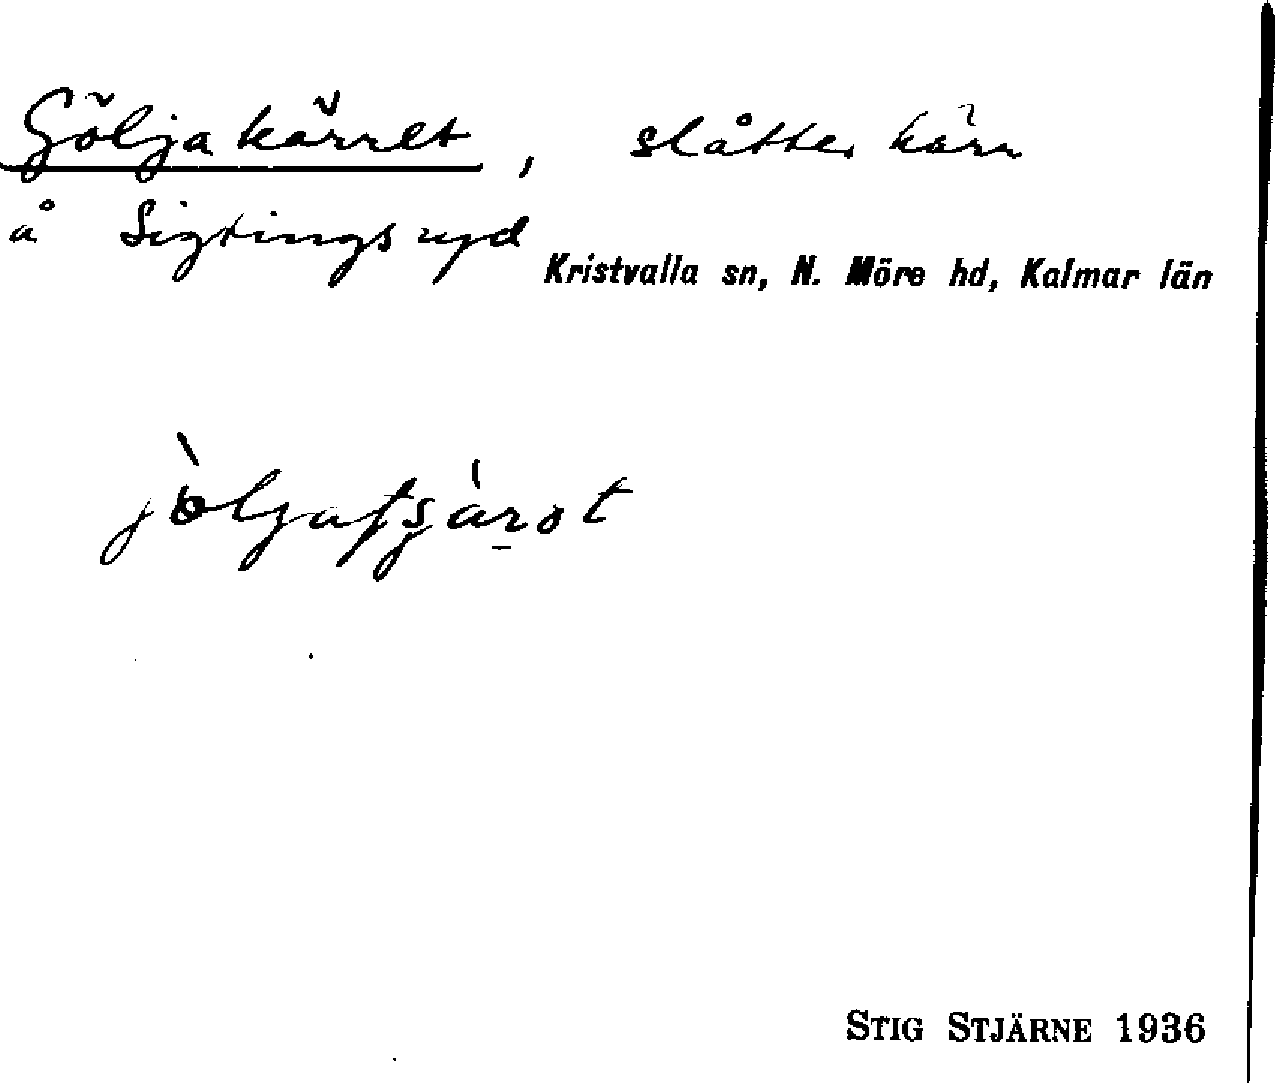 Göljakärret, slåtterkärr
å Sigtingsryd
Kristvalla sn, N. Möre hd, Kalmar län
STIG STJÄRNE 1936